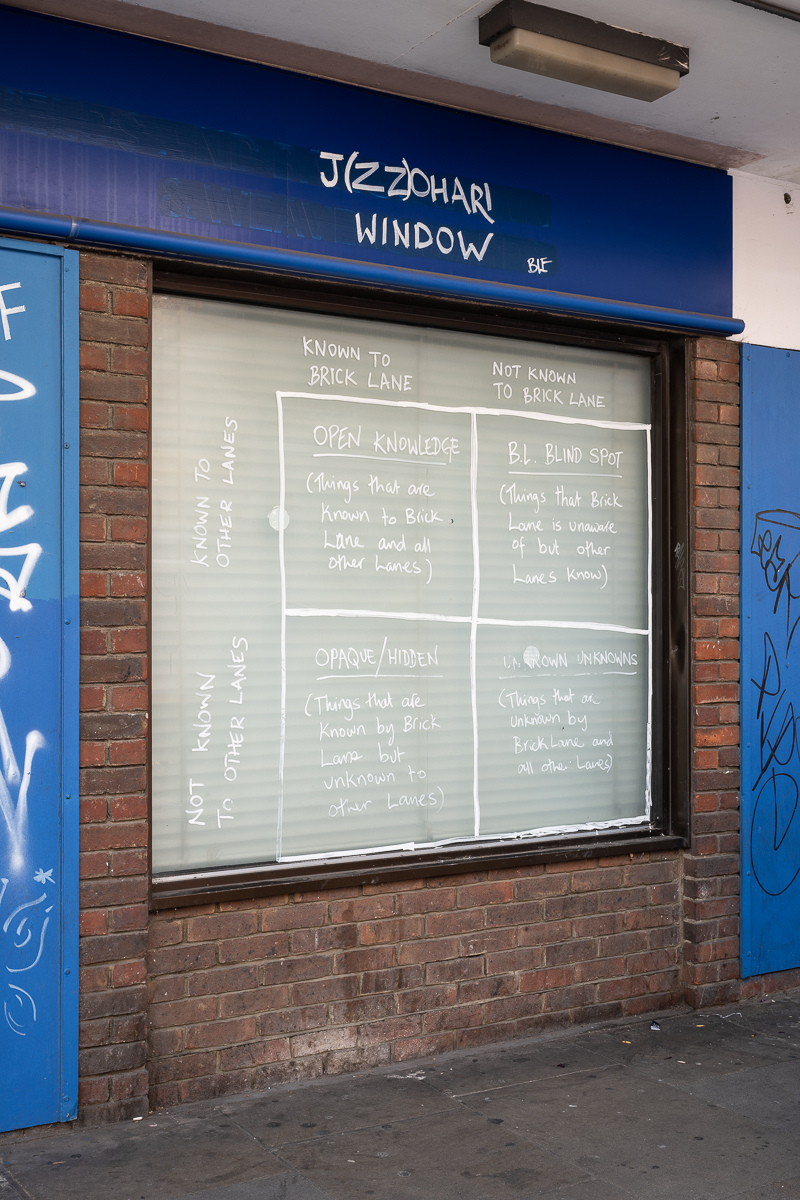 J(ZZ)OHARI
WINDOW
BLE
KNOWN TO
BRICK LANE
NOT KNOWN
TO BRICK LANE
KNOWN TO
OTHER LANES
OPEN KNOWLEDGE
(Things that are
Known to Brick
Lane and all
other Lanes)
B.L. BLIND SPOT
(Things that Brick
Lane is unaware
of but other
Lanes know)
NOT KNOWN
TO OTHER LANES
OPAQUE/HIDDEN
(Things that are
Known by Brick
Lane but
unknown to
other Lanes)
UNKNOWN UNKNOWNS
(Things that are
unknown by
Brick Lane and
all other Lanes)